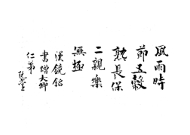 風雨時
節五穀
熟長保
二親樂
無極
漢鏡銘
書贈大卿
仁弟